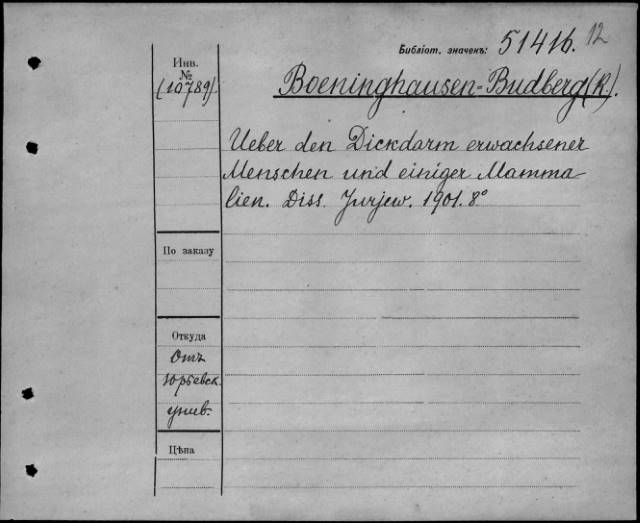 Библіот. значенъ: 51416. 12
Инв.
№
(10789)
Boeninghausen-Budberg (R.).
Ueber den Dickdarm erwachsener
Menschen und einiger Mamma-
lien. Diss. Jurjew. 1901. 8°
По заказу
Откуда
Отъ
Юрьевск.
унив.
Цѣна